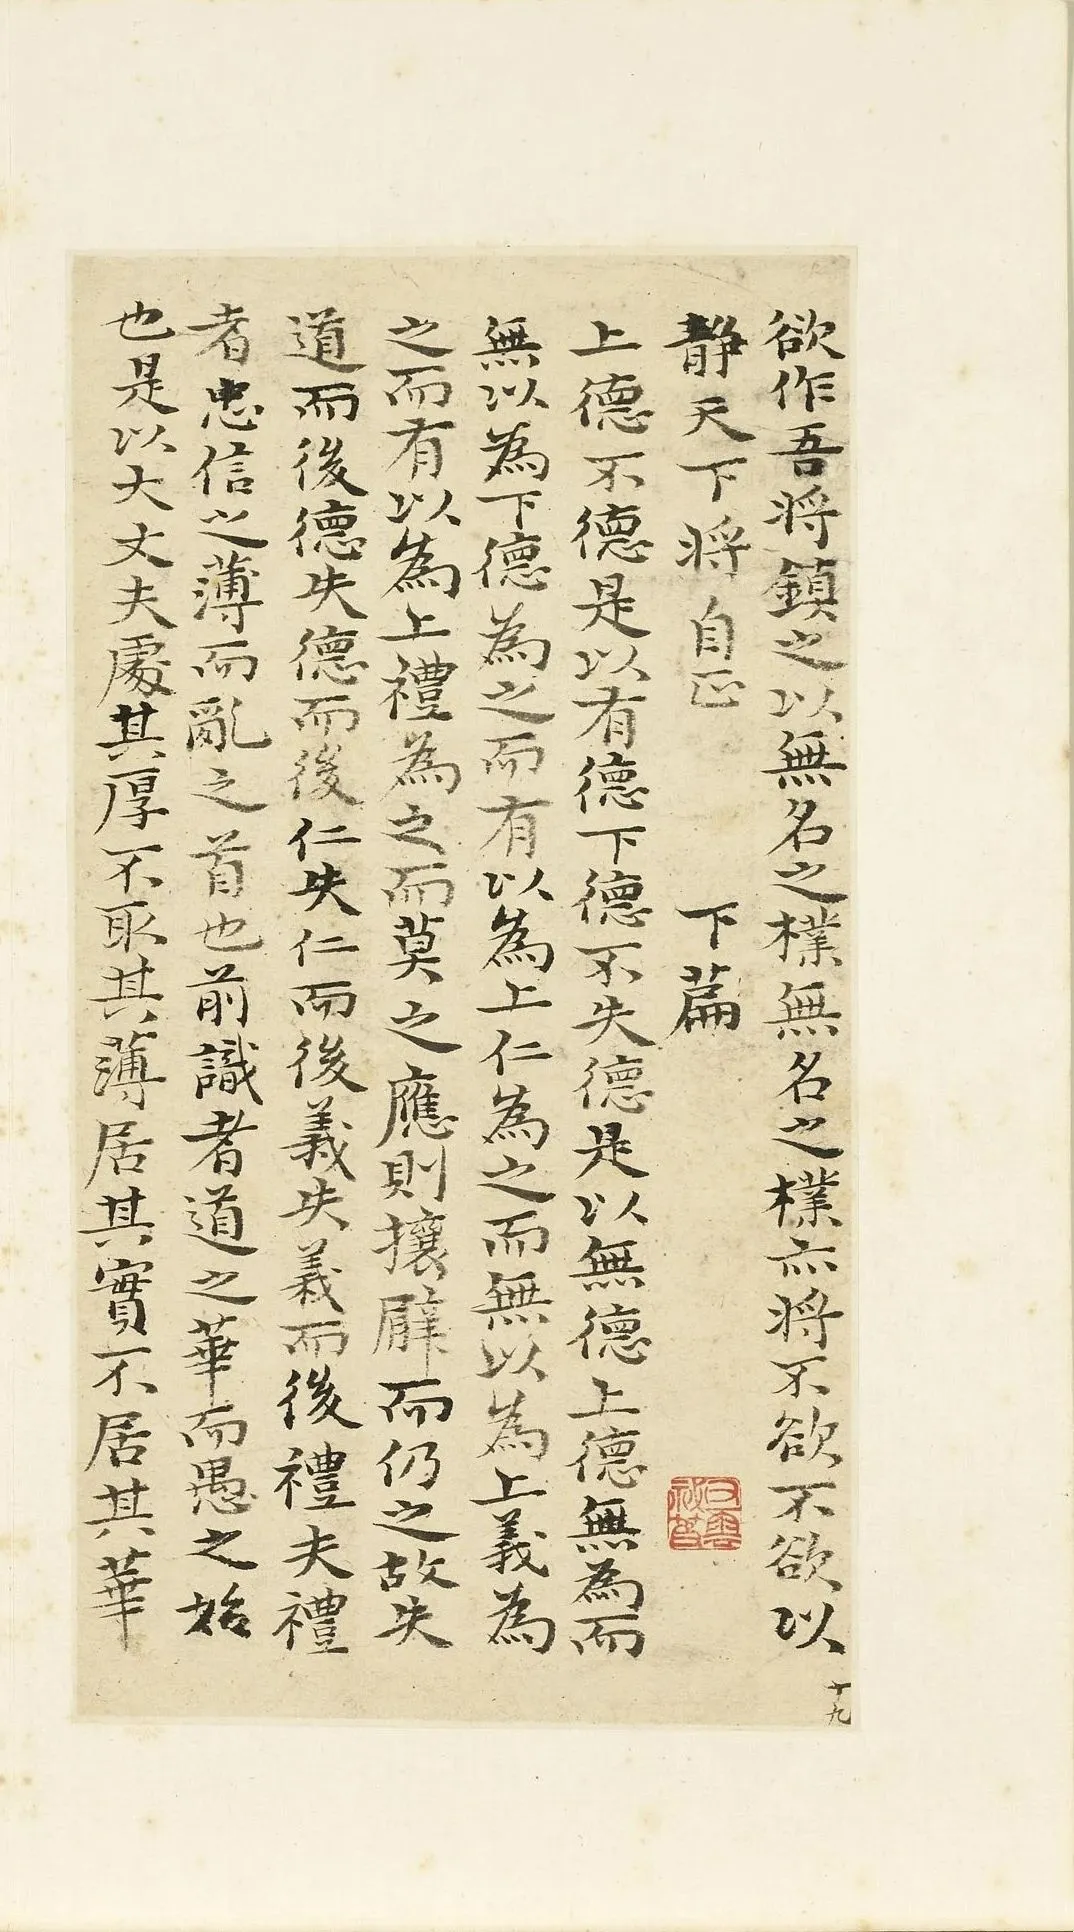 欲作吾将鎮之以無名之樸無名之樸亦将不欲不欲以
静天下将自正　　　下篇
上德不德是以有德下德不失德是以無德上德無為而
無以為下德為之而有以為上仁為之而無以為上義為
之而有以為上禮為之而莫之應則攘臂而仍之故失
道而後德失德而後仁失仁而後義失義而後禮夫禮
者忠信之薄而亂之首也前識者道之華而愚之始
也是以大丈夫處其厚不取其薄居其實不居其華
十九